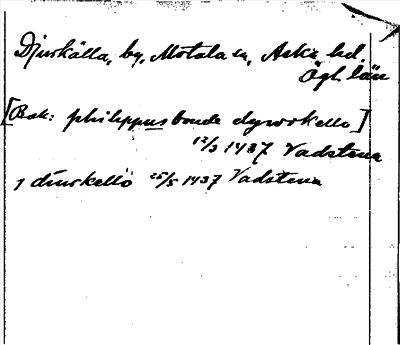 Djurkälla, by, Motala sn, Aska hd.
Ögl. län
[Bak: philippus bonde dyrorkello]
12/3 1437 Vadstena
j diurkello 25/5 1437 Vadstena